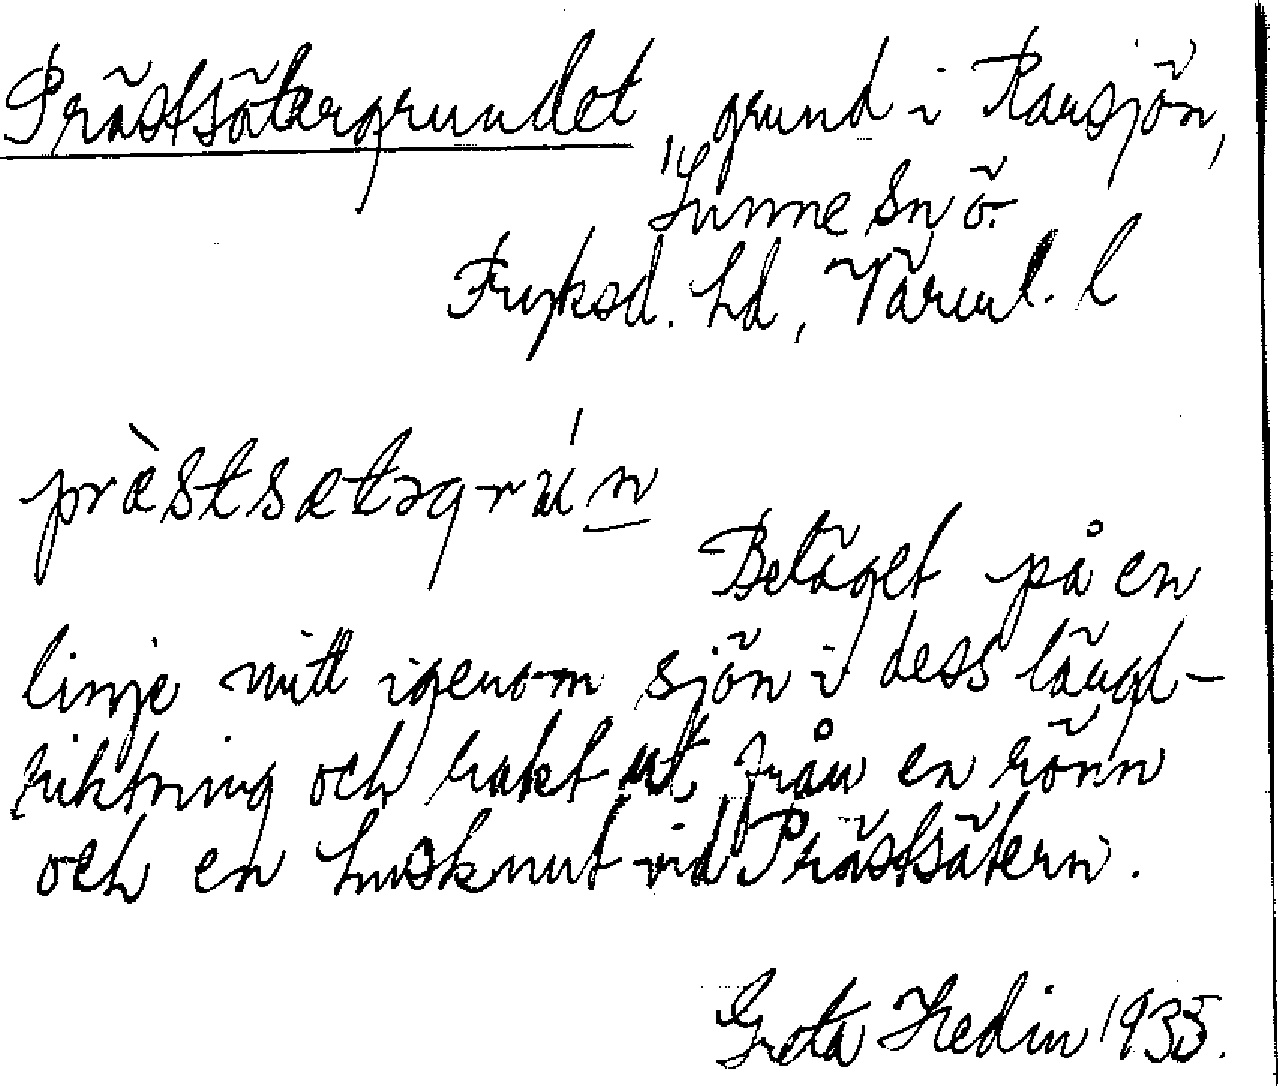 Prästsätergrundet, grund i Ransjön,
Sunne sn ö.
Fryksd. hd, Värml. l
prὲstsætəgrún
Beläget på en
linje mitt igenom sjön i dess längd-
riktning och rakt ut från en rönn
och en husknut vid Prästsätern.
Greta Hedin 1935.